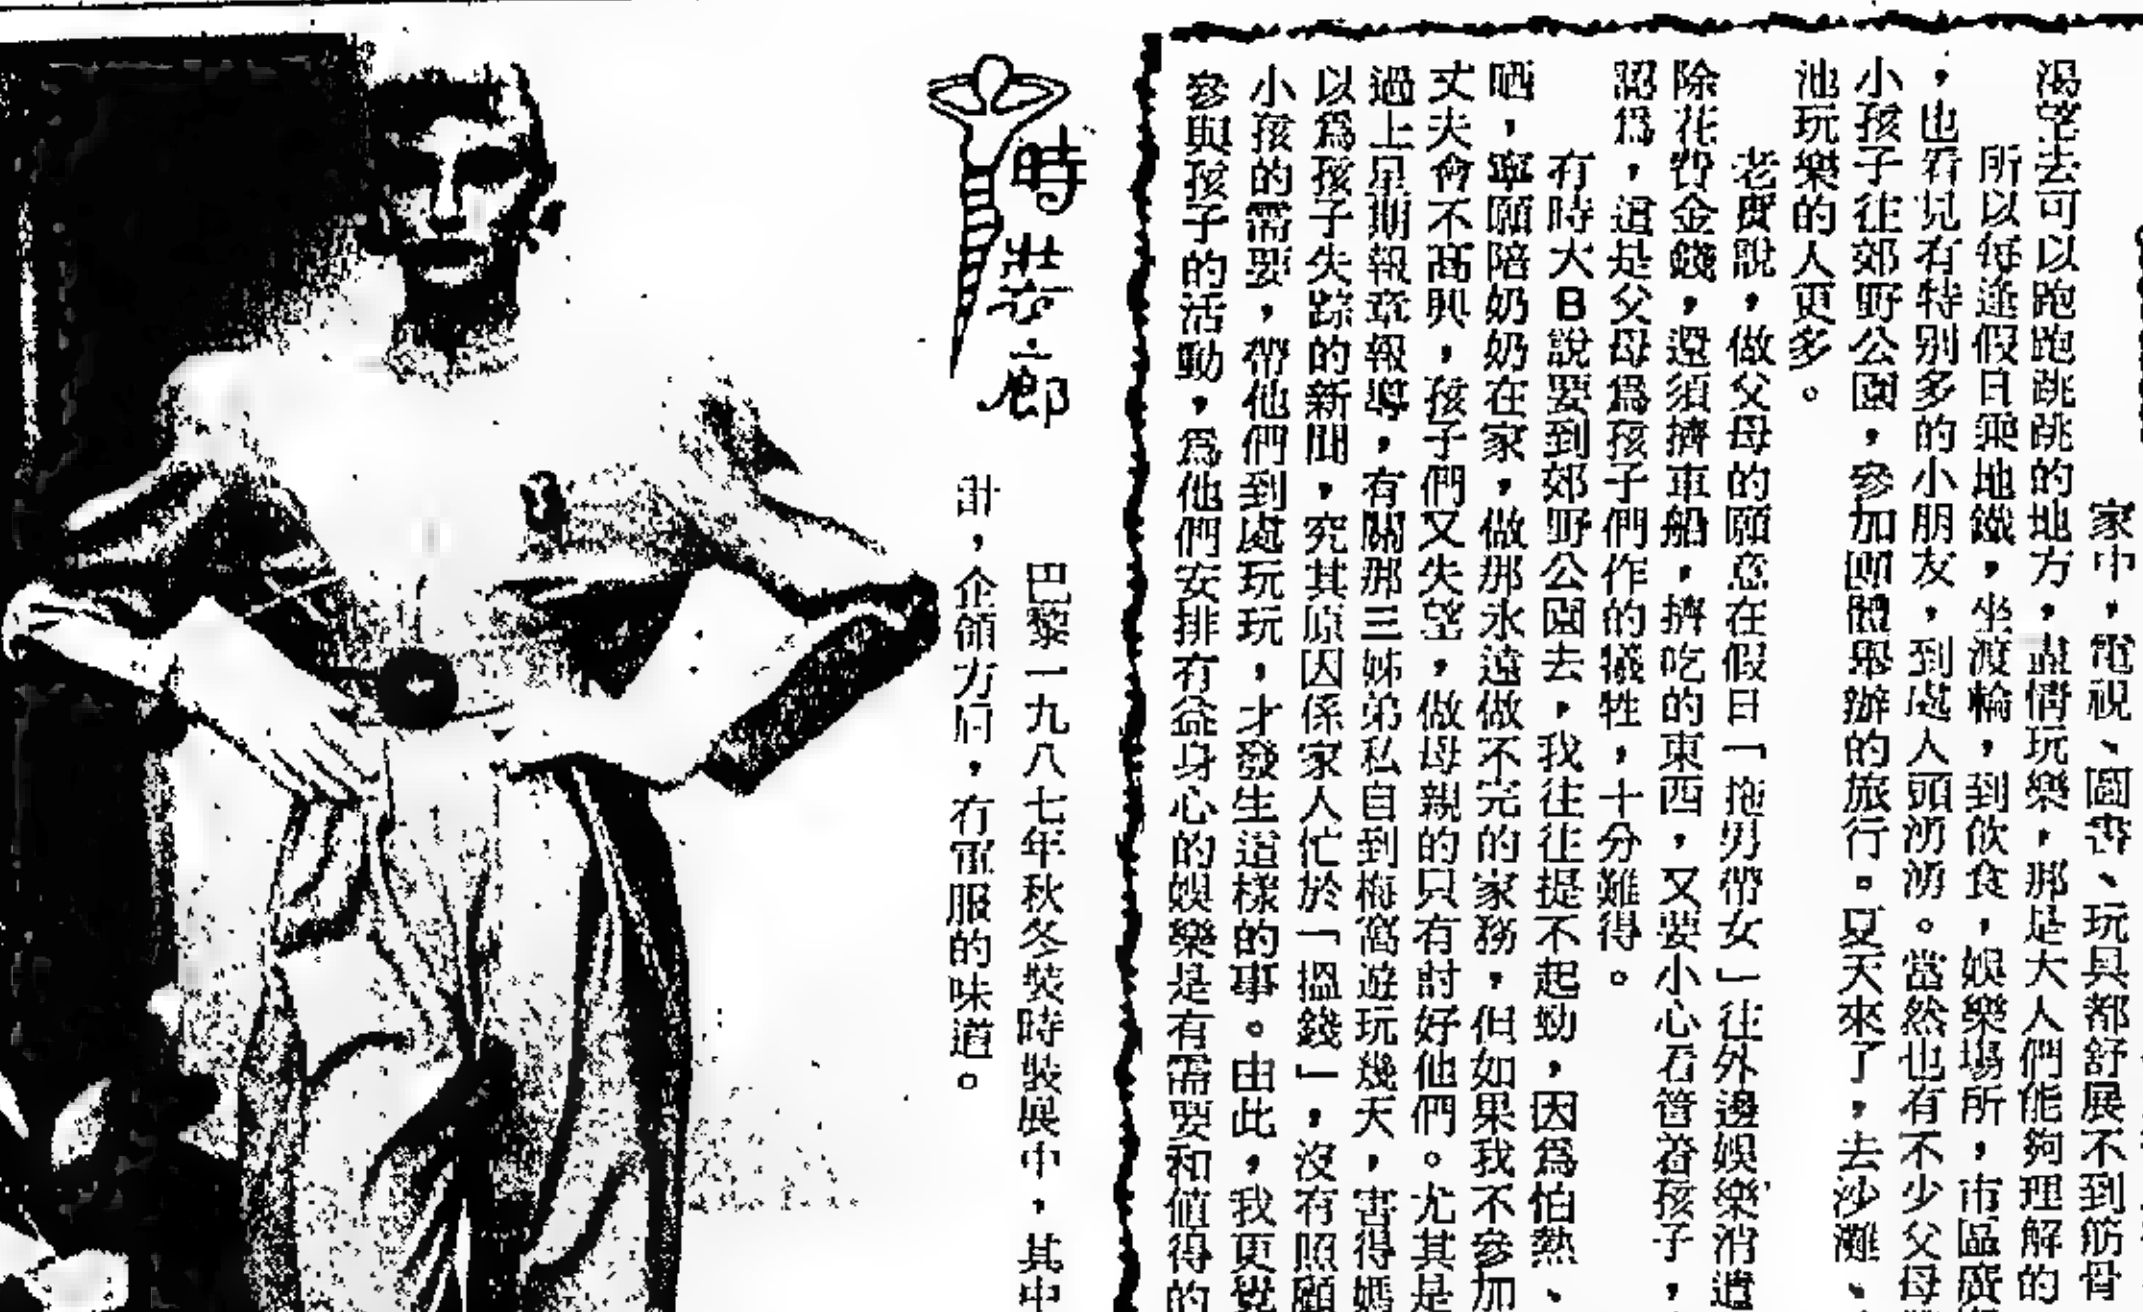 家中，電視、圖書、玩具都舒展不到筋骨
渴望去可以跑跑跳跳的地方，盡情玩樂，那是大人們能夠理解的
所以每逢假日乘地鐵，坐渡輪，到飲食，娛樂場所，市區廣
，也看見有特別多的小朋友，到處人頭湧湧。當然也有不少父母
小孩子往郊野公園，參加團體舉辦的旅行。夏天來了，去沙灘、
池玩樂的人更多。
老實說，做父母的願意在假日「拖男帶女」往外邊娛樂消遣
除花費金錢，還須擠車船，擠吃的東西，又要小心看管著孩子，
認為，這是父母為孩子們作的犧牲，十分難得。
有時大B說要到郊野公園去，我往往提不起勁，因為怕熱、
晒，寧願陪奶奶在家，做那永遠做不完的家務，但如果我不參加
丈夫會不高興，孩子們又失望，做母親的只有討好他們。尤其是
過上星期報章報導，有關那三姊弟私自到梅窩遊玩幾天，害得媽
以為孩子失踪的新聞，究其原因係家人忙於「搵錢」，沒有照顧
小孩的需要，帶他們到處玩玩，才發生這樣的事。由此，我更覺
參與孩子的活動，為他們安排有益身心的娛樂是有需要和值得的
時裝廊
巴黎一九八七年秋冬裝時裝展中，其中
計，企領方肩，有軍服的味道。